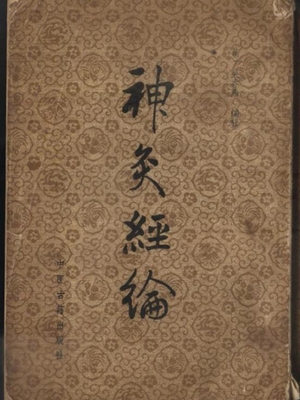 神灸經綸
中医古籍出版社